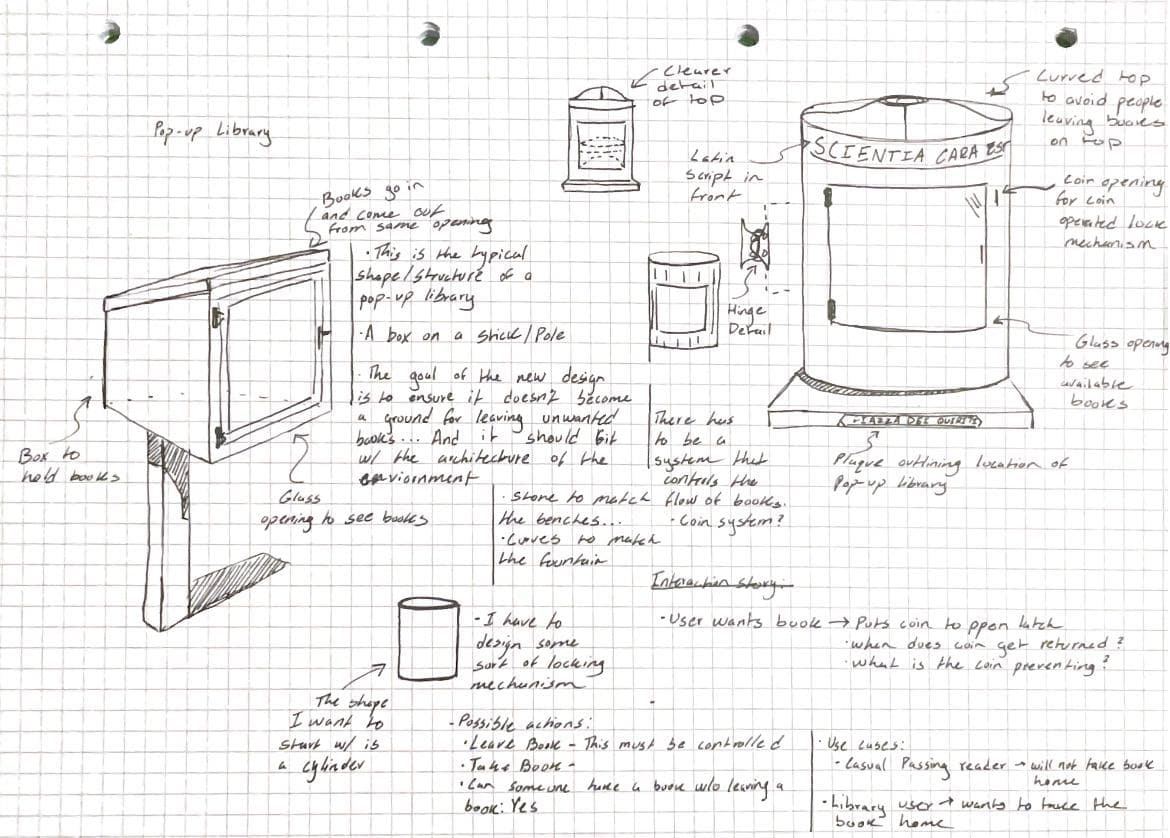 Pop-up Library
Clearer
detail
of top
Curved top
to avoid people
leaving books
on top
SCIENTIA CARA EST
Latin
Script in
front
Coin opening
for coin
operated lock
mechanism
Hinge
Detail
Glass opening
to see
available
books
PIAZZA DEL
Plaque outlining location of
Pop-up library
Books go in
and come out
from same opening
Box to
hold books
Glass
opening to see books
· This is the typical
shape/structure of a
pop-up library
· A box on a stick/Pole
· The goal of the new design
is to ensure it doesn't become
a ground for leaving unwanted
books... And it should fit
w/ the architecture of the
environment
· Stone to match
the benches...
· Curves to match
the fountain
There has
to be a
system that
controls the
flow of books.
· Coin system?
Interaction story:
- User wants book → Puts coin to open latch
· when does coin get returned?
· what is the coin preventing?
The shape
I want to
start w/ is
a cylinder
- I have to
design some
sort of locking
mechanism
- Possible actions:
· Leave Book - This must be controlled
· Take Book -
· Can someone take a book w/o leaving a
book: Yes
· Use cases:
- Casual Passing reader → will not take book
home
· Library user → wants to take the
book home